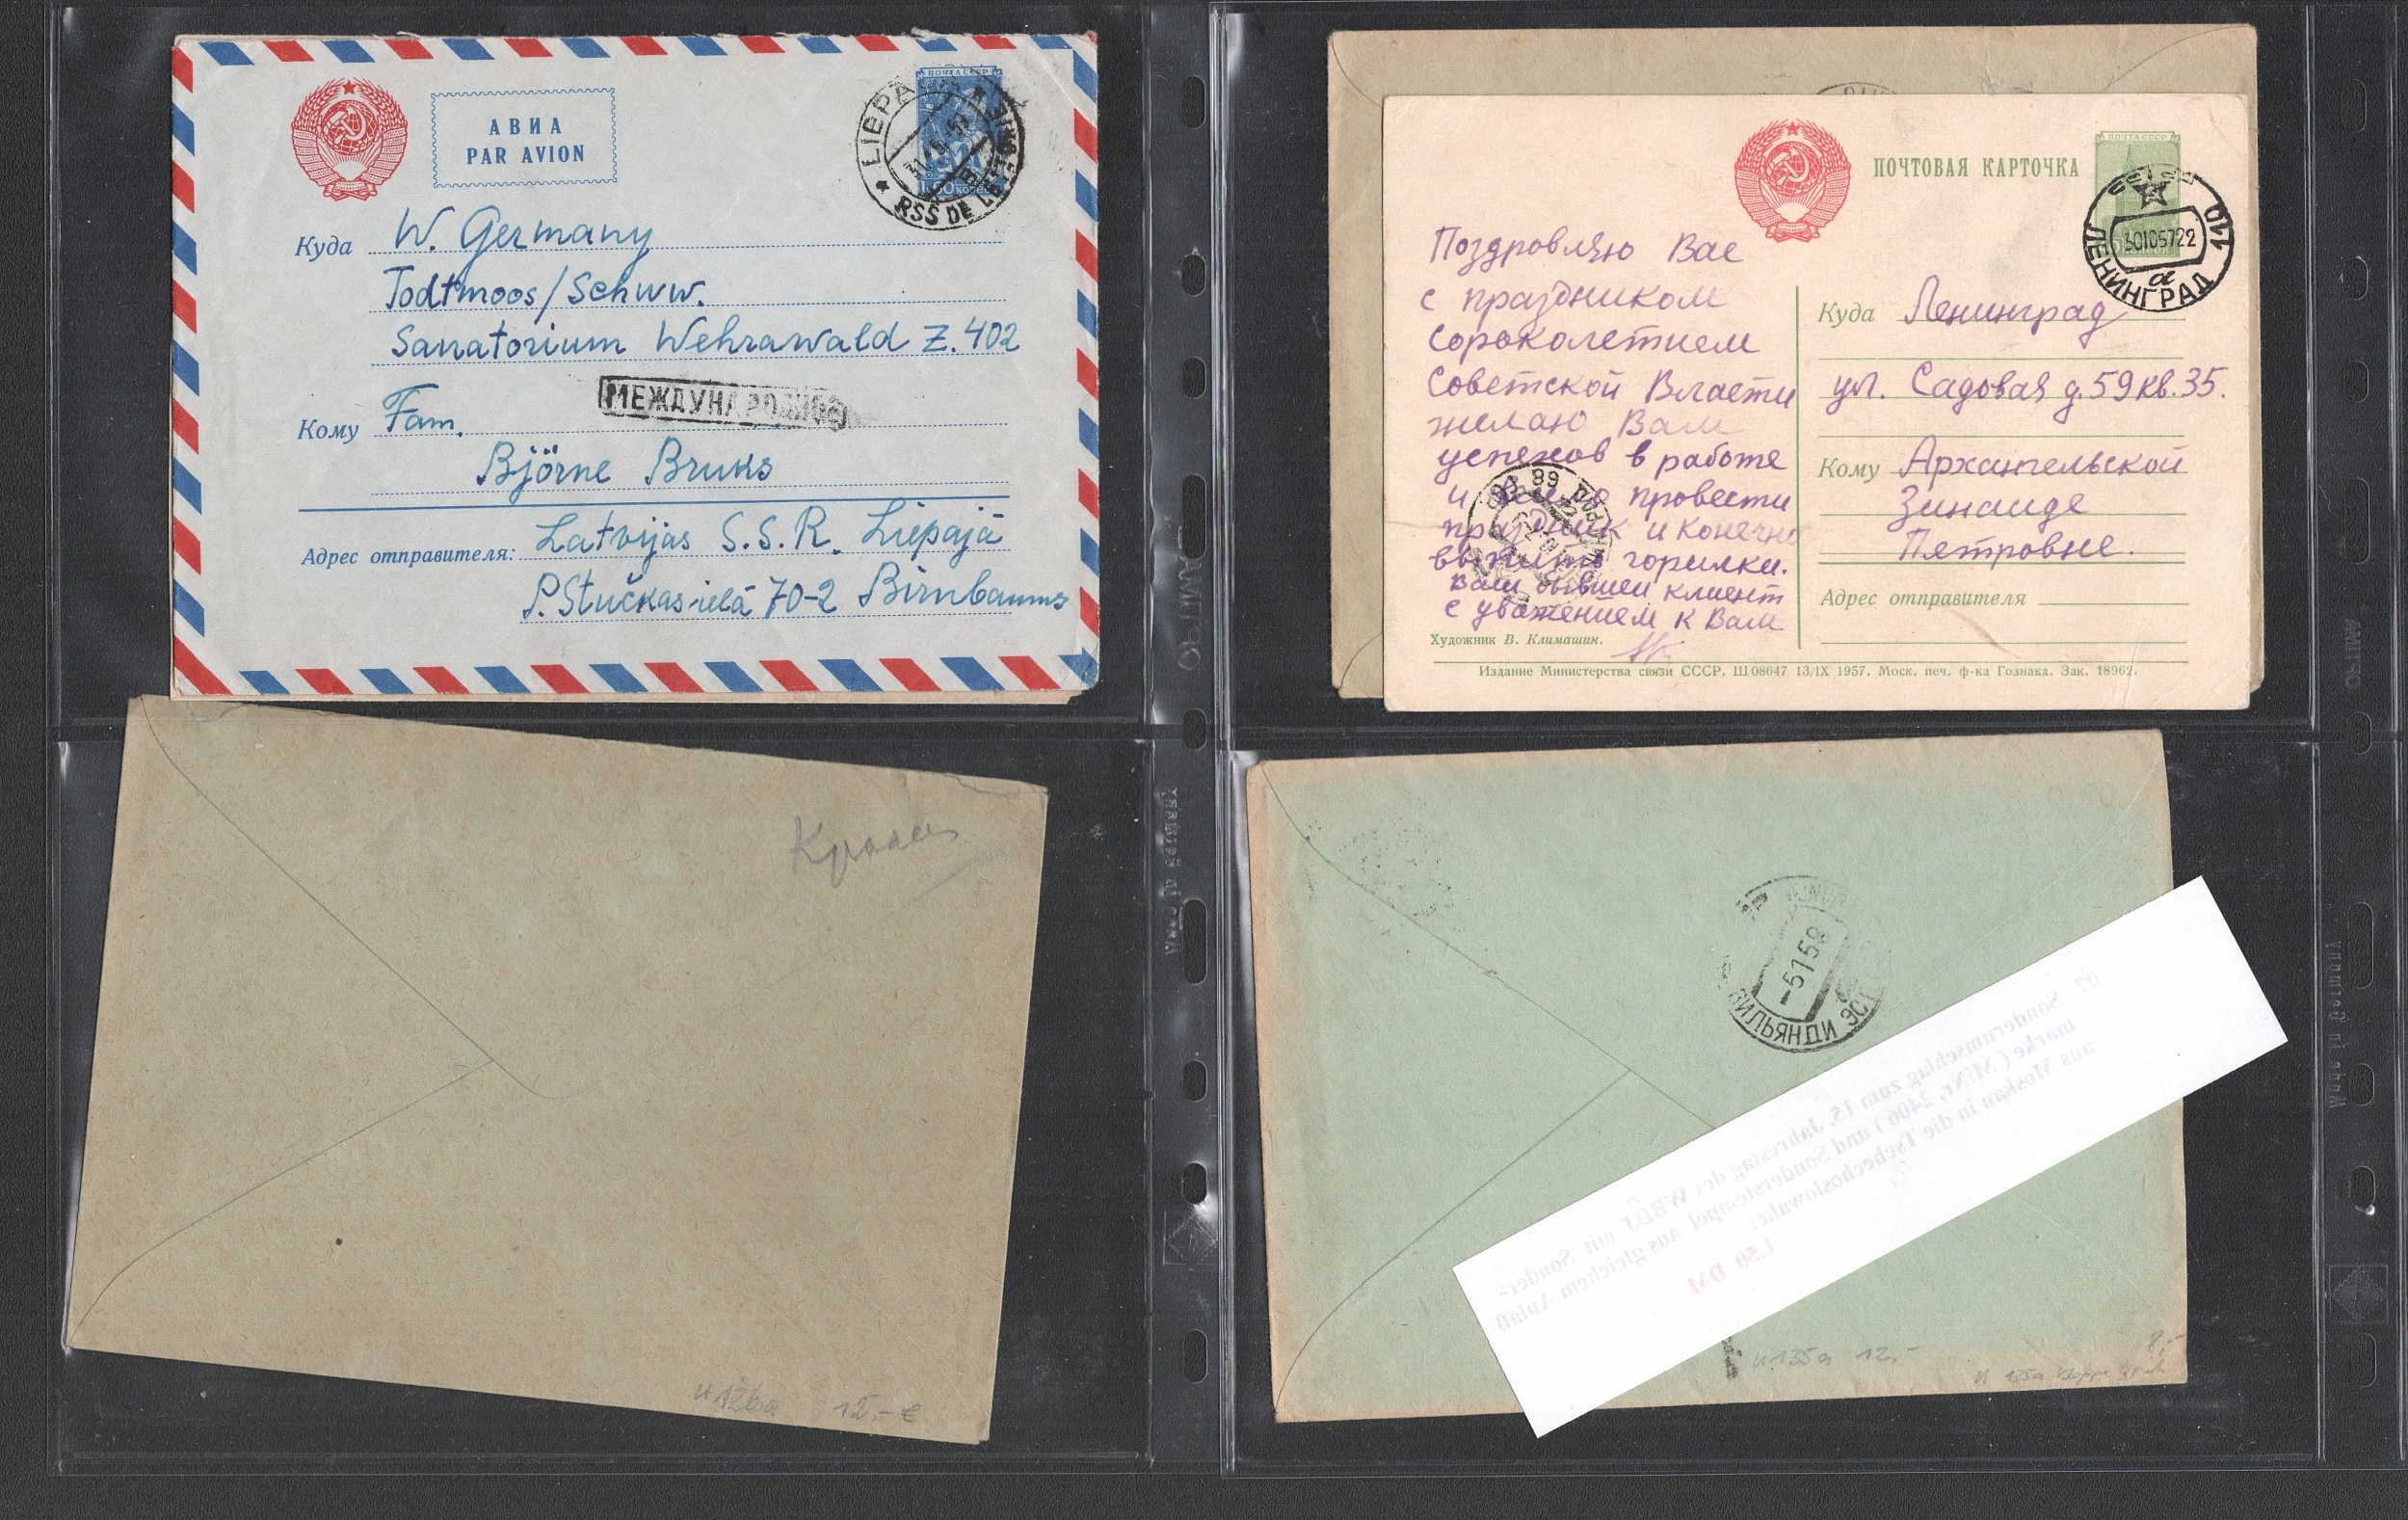 АВИА
PAR AVION
ПОЧТА СССР
LIEPA
RSS DE
Куда W. Germany
Todtmoos/Schww.
Sanatorium Wehrawald Z. 402
МЕЖДУНАРОДНОЕ
Кому Fam.
Björne Bruks
Адрес отправителя: Latvijas S.S.R. Liepajā
P. Stučkas ielā 70-2 Birnbaums
ПОЧТОВАЯ КАРТОЧКА
ПОЧТА СССР
ЛЕНИНГРАД
30105722
Поздровляю Вас
с праздником
Сороколетием
Советской Власти
желаю Вам
успехов в работе
и провести
праздник и конечно
выпить горилки.
Ваш бывшей клиент
с уважением к Вам
Художник В. Климашин.
Куда Ленинград
ул. Садовая д. 59 кв. 35.
Кому Архангельской
Зинаиде
Петровне.
Адрес отправителя
Издание Министерства связи СССР. Ш 08647 13/IX 1957. Моск. печ. ф-ка Гознака. Зак. 18962.
U 126a 12,- €
ВИЛЬЯНДИ ЭСТ
-5158
07
Sonderumschlag zum 15. Jahrestag des WBDJ mit Sonder-
marke ( MiNr. 2406 ) und Sonderstempel aus gleichem Anlaß
aus Moskau in die Tschechoslowakei
1,50 DM
U 135a 12,-
8,-